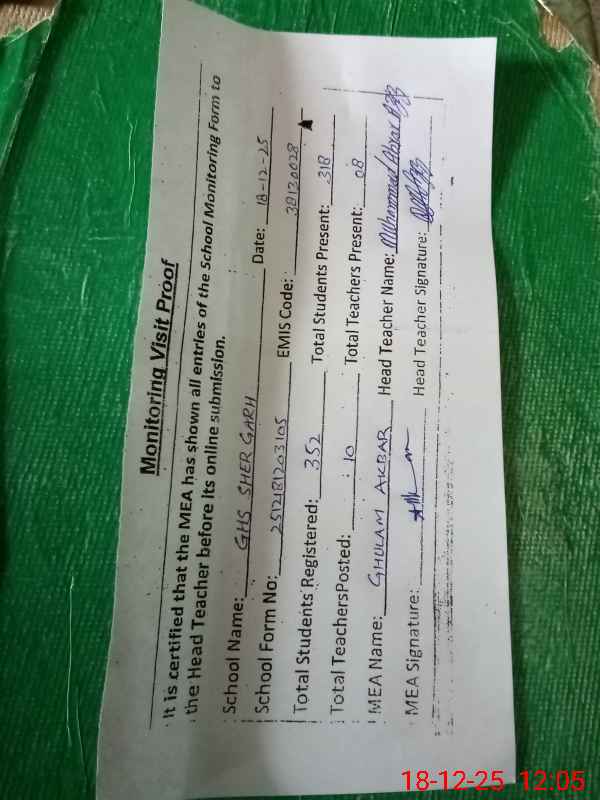 Monitoring Visit Proof
It is certified that the MEA has shown all entries of the School Monitoring Form to
the Head Teacher before its online submission.
School Name: GHS SHER GARH Date: 18-12-25
School Form No: 2512181203105 EMIS Code: 38120028
Total Students Registered: 352 Total Students Present: 318
Total TeachersPosted: 10 Total Teachers Present: 08
MEA Name: GHULAM AKBAR Head Teacher Name: Muhammad Abrar
MEA Signature: Head Teacher Signature:
18-12-25 12:05